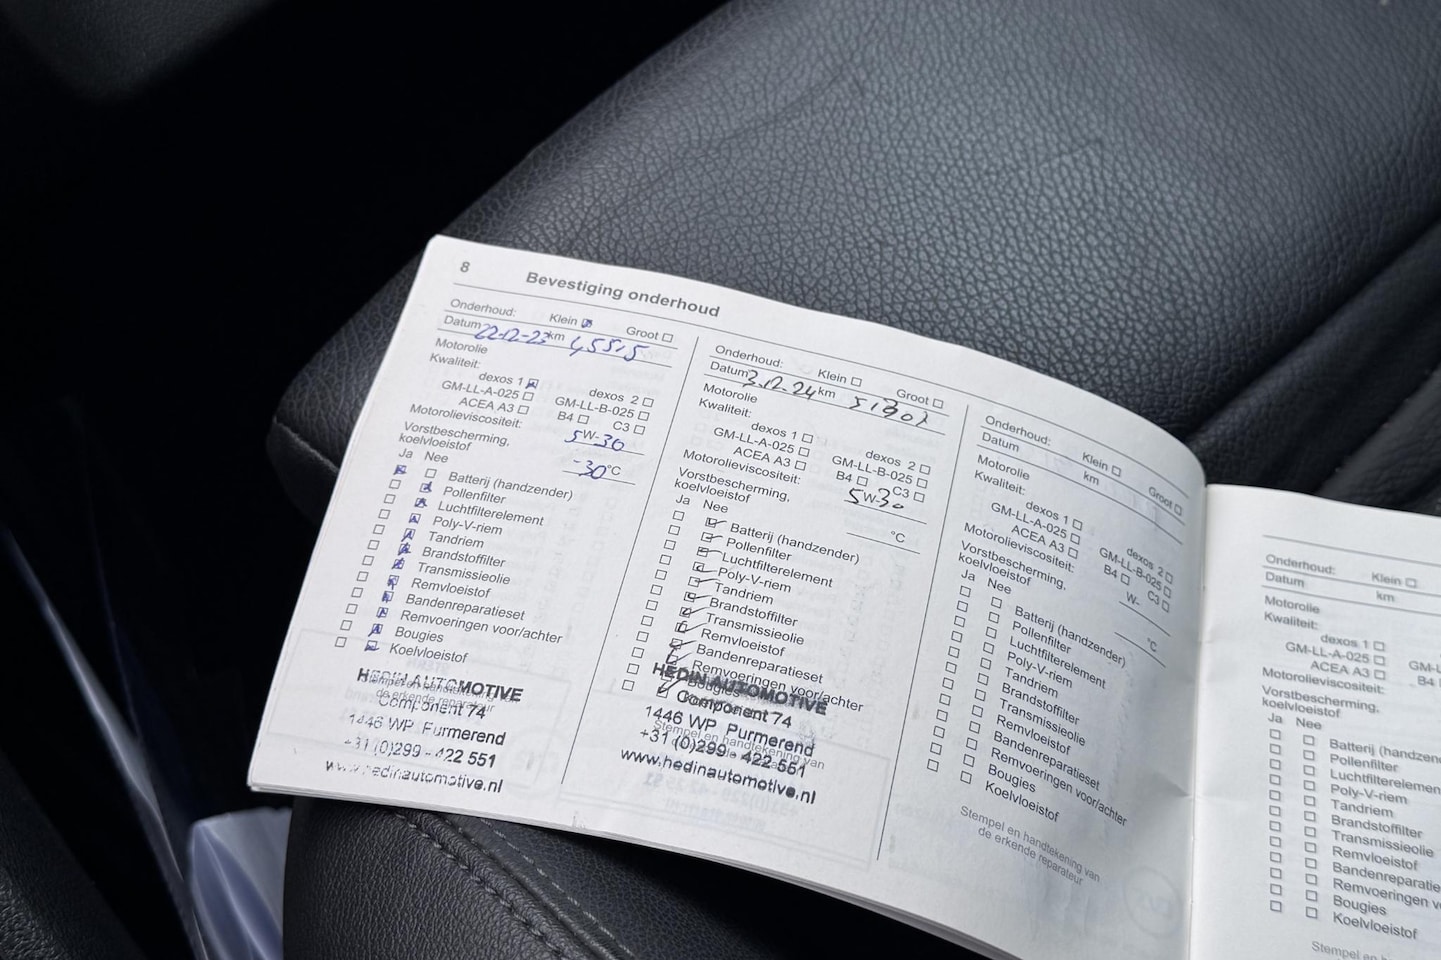 8 Bevestiging onderhoud
Onderhoud: Klein Groot
Datum 22-12-23 km 45515
Motorolie
Kwaliteit:
dexos 1 dexos 2
GM-LL-A-025 GM-LL-B-025
ACEA A3 B4 C3
Motorolieviscositeit: 5W-30
Vorstbescherming,
koelvloeistof -30°C
Ja Nee
Batterij (handzender)
Pollenfilter
Luchtfilterelement
Poly-V-riem
Tandriem
Brandstoffilter
Transmissieolie
Remvloeistof
Bandenreparatieset
Remvoeringen voor/achter
Bougies
Koelvloeistof
HEDIN AUTOMOTIVE
Component 74
1446 WP Purmerend
+31 (0)299 - 422 551
www.hedinautomotive.nl
Onderhoud: Klein Groot
Datum 3-12-24 km
Motorolie
Kwaliteit:
dexos 1 dexos 2
GM-LL-A-025 GM-LL-B-025
ACEA A3 B4 C3
Motorolieviscositeit: 5W-30
Vorstbescherming,
koelvloeistof °C
Ja Nee
Batterij (handzender)
Pollenfilter
Luchtfilterelement
Poly-V-riem
Tandriem
Brandstoffilter
Transmissieolie
Remvloeistof
Bandenreparatieset
Remvoeringen voor/achter
Bougies
HEDIN AUTOMOTIVE
Component 74
1446 WP Purmerend
Stempel en handtekening van
+31 (0)299 - 422 551
www.hedinautomotive.nl
Onderhoud: Klein Groot
Datum km
Motorolie
Kwaliteit:
dexos 1 dexos 2
GM-LL-A-025 GM-LL-B-025
ACEA A3 B4 C3
Motorolieviscositeit: W-
Vorstbescherming,
koelvloeistof °C
Ja Nee
Batterij (handzender)
Pollenfilter
Luchtfilterelement
Poly-V-riem
Tandriem
Brandstoffilter
Transmissieolie
Remvloeistof
Bandenreparatieset
Remvoeringen voor/achter
Bougies
Koelvloeistof
Stempel en handtekening van
de erkende reparateur
Onderhoud: Klein
Datum km
Motorolie
Kwaliteit:
dexos 1
GM-LL-A-025
ACEA A3 B4
Motorolieviscositeit:
Vorstbescherming,
koelvloeistof
Ja Nee
Batterij
Pollenfilter
Poly-V-riem
Tandriem
Brandstoffilter
Transmissieolie
Remvloeistof
Remvoeringen
Bougies
Koelvloeistof
Stempel en